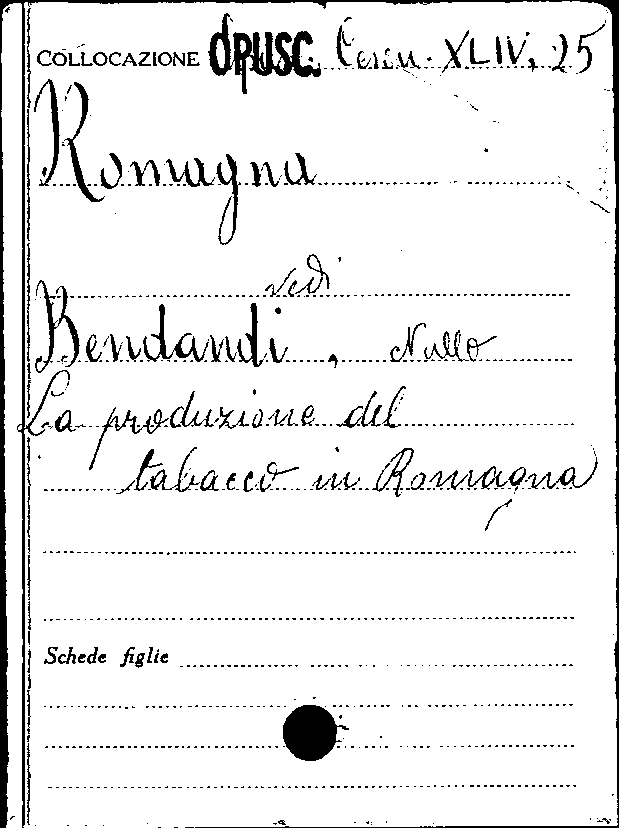 COLLOCAZIONE OPUSC. Cesen. XLIV, 25
Romagna
vedi
Bendandi, Nullo
La produzione del
tabacco in Romagna
Schede figlie